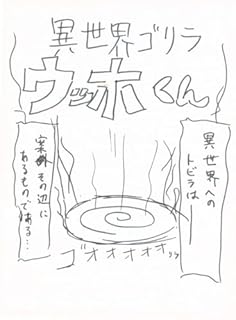 異世界ゴリラ
ウッホくん
異世界への
トビラは
案外その辺に
あるものである…
ゴオオオオオッ